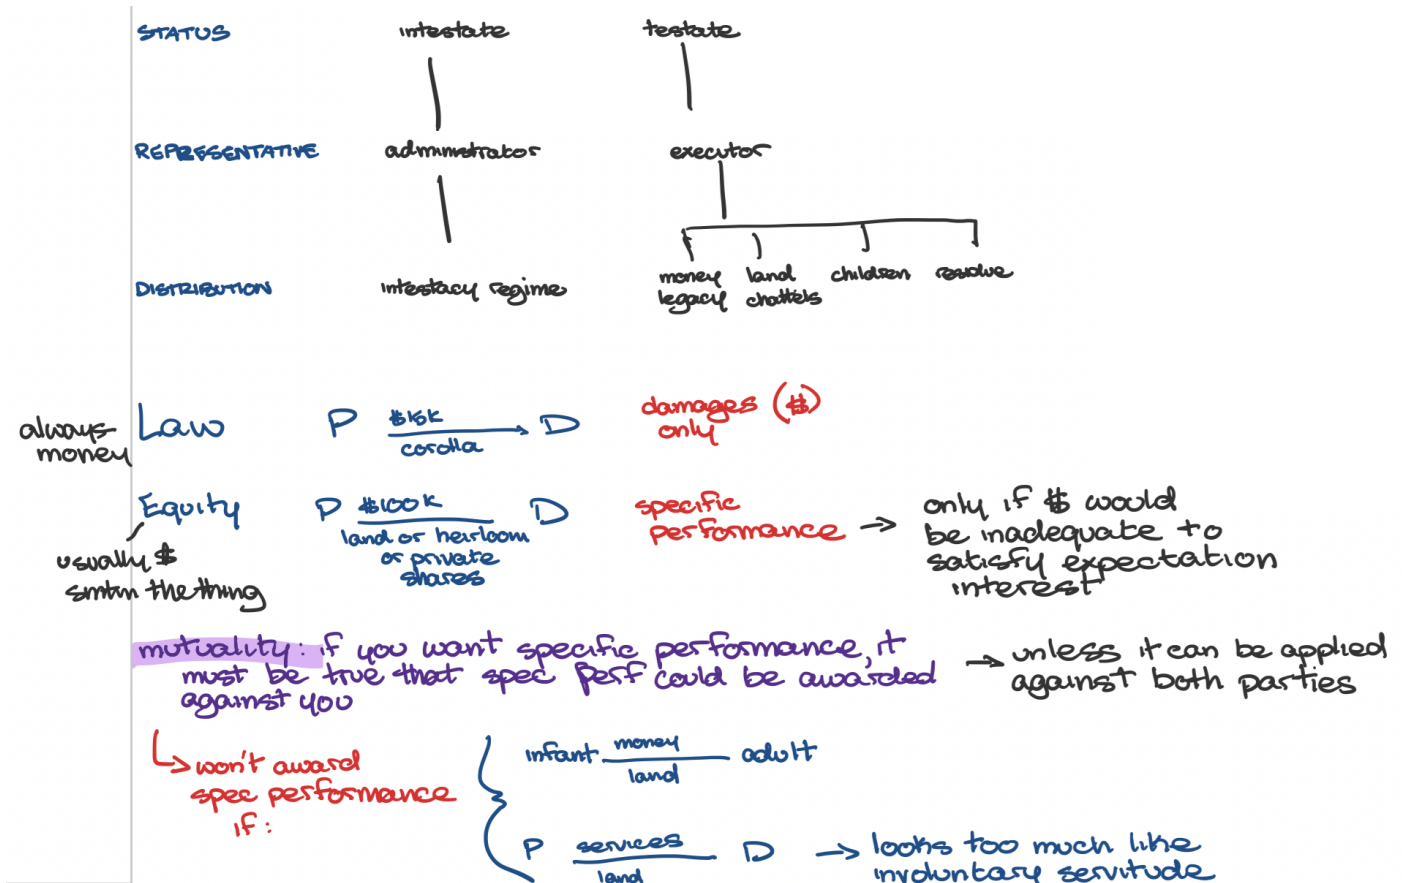 STATUS intestate testate
REPRESENTATIVE administrator executor
DISTRIBUTION intestacy regime
money legacy
land chattels
children
residue
always money
Law P $15k D
corolla
damages ($)
only
Equity P $100k D
land or heirloom
or private
shares
specific
performance →
only if $ would
be inadequate to
satisfy expectation
interest
usually $
smtm the thing
mutuality: if you want specific performance, it
must be true that spec perf could be awarded
against you
→ unless it can be applied
against both parties
won't award
spec performance
if:
infant money adult
land
P services D →
land
looks too much like
involuntary servitude